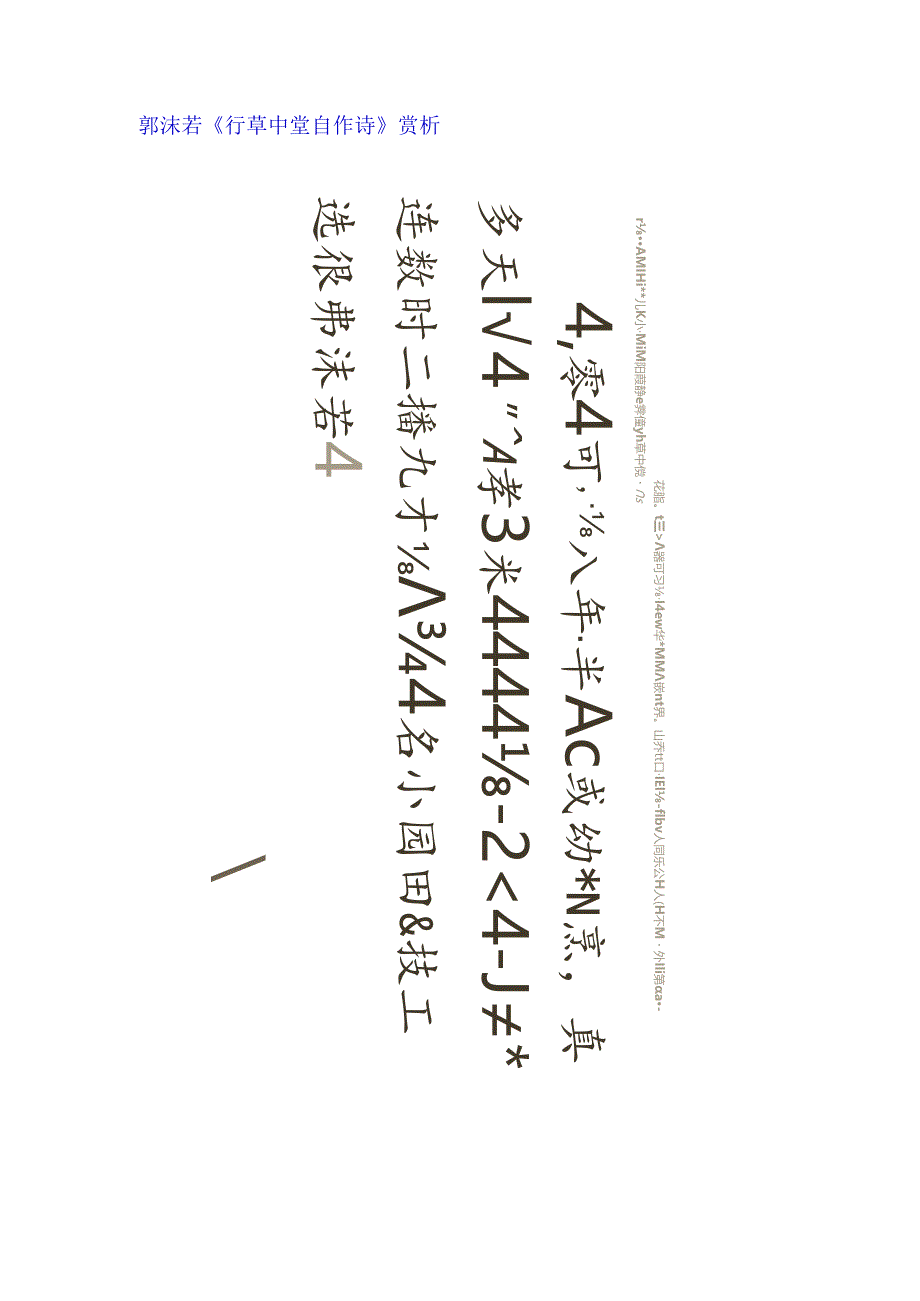 郭沫若《行草中堂自作诗》赏析
r⅛••AMIHi**儿K小·MiM阳葭静e霁僮yh草中傥·八s
花脂。t三>Λ器可习⅛·I4ew华*MMΛ嵌nt界。山乔tt口·IEI⅛-flbv人同乐公H人(H不M·外Ili第αa•-
4,零4可,·⅛八年·半AC或幼*N烹,真
多天I√4"^A孝3米4444⅛-2<4-J≠*
连数时二播九才⅛Λ¾4名小园田&技工
选很弗沫若4
\